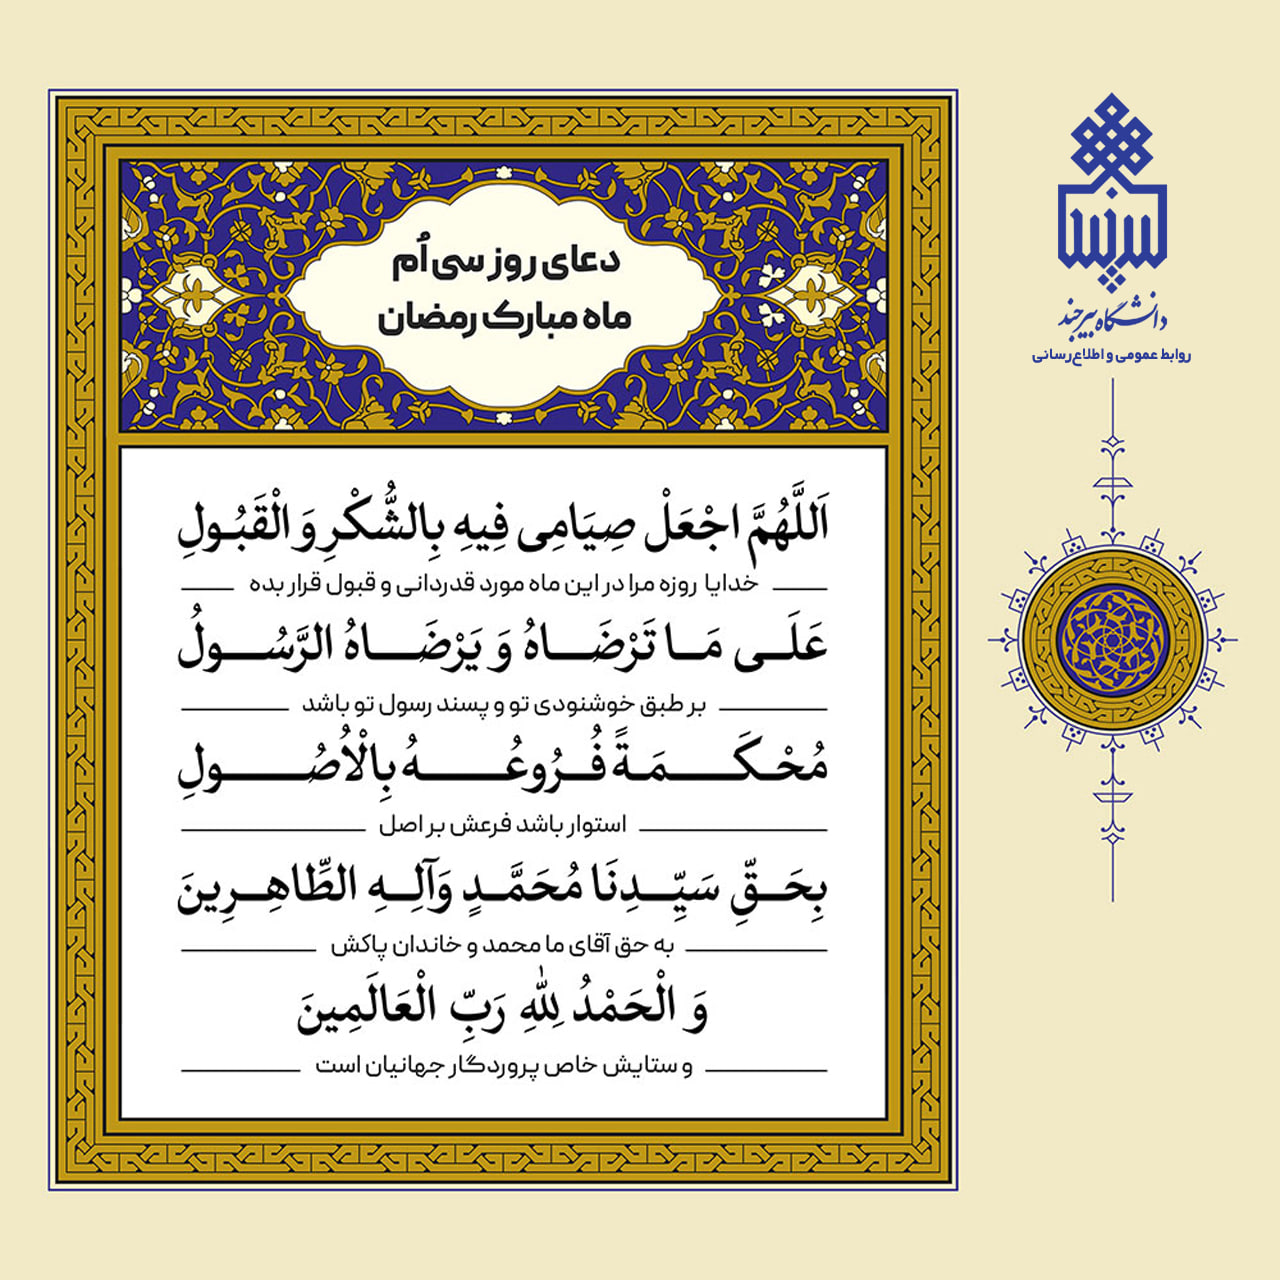 دعای روز سی‌اُم
ماه مبارک رمضان
اَللَّهُمَّ اجْعَلْ صِیَامِی فِیهِ بِالشُّکْرِ وَ الْقَبُولِ
خدایا روزه مرا در این ماه مورد قدردانی و قبول قرار بده
عَلَی مَا تَرْضَاهُ وَ یَرْضَاهُ الرَّسُولُ
بر طبق خوشنودی تو و پسند رسول تو باشد
مُحْکَمَةً فُرُوعُهُ بِالْاُصُولِ
استوار باشد فرعش بر اصل
بِحَقِّ سَیِّدِنَا مُحَمَّدٍ وَآلِهِ الطَّاهِرِینَ
به حق آقای ما محمد و خاندان پاکش
وَ الْحَمْدُ لِلّٰهِ رَبِّ الْعَالَمِینَ
و ستایش خاص پروردگار جهانیان است
بیرجند
دانشگاه بیرجند
روابط عمومی و اطلاع‌رسانی